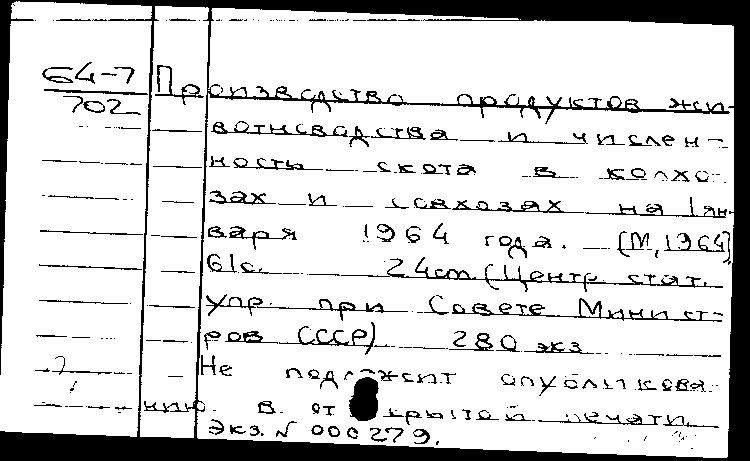 64-7 Производство продуктов жи-
702
вотноводства и числен-
ность скота в колхо-
зах и совхозах на 1 ян-
варя 1964 года. [М, 1964]
61с. 24cm (Центр. стат.
упр. при Совете Минист-
ров СССР) 280 экз
Не подлежит опубликова-
нию в открытой печати.
Экз. N 000279.